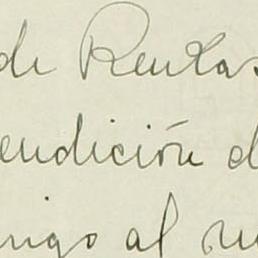 de Rentas
endición d
ingo al